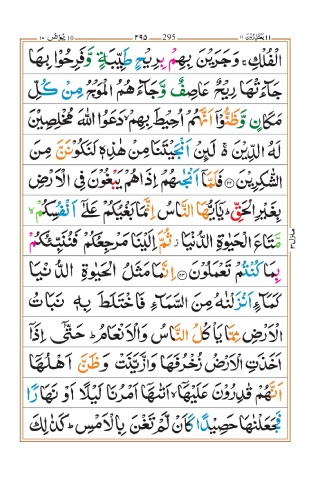 یونس ۱۰ ۲۹۵ 295 یعتذرون ۱۱
الْفُلْكِ ۚ وَجَرَيْنَ بِهِمْ بِرِيْحٍ طَيِّبَةٍ وَّفَرِحُوْا بِهَا
جَآءَتْهَا رِيْحٌ عَاصِفٌ وَّجَآءَهُمُ الْمَوْجُ مِنْ كُلِّ
مَكَانٍ وَّظَنُّوْۤا اَنَّهُمْ اُحِيْطَ بِهِمْ ۙ دَعَوُا اللّٰهَ مُخْلِصِيْنَ
لَهُ الدِّيْنَ ۚ لَئِنْ اَنْجَيْتَنَا مِنْ هٰذِهٖ لَنَكُوْنَنَّ مِنَ
الشّٰكِرِيْنَ ﴿۲۲﴾ فَلَمَّاۤ اَنْجٰىهُمْ اِذَا هُمْ يَبْغُوْنَ فِى الْاَرْضِ
بِغَيْرِ الْحَقِّ ؕ يٰۤاَيُّهَا النَّاسُ اِنَّمَا بَغْيُكُمْ عَلٰٓى اَنْفُسِكُمْ ۙ
مَّتَاعَ الْحَيٰوةِ الدُّنْيَا ؗ ثُمَّ اِلَيْنَا مَرْجِعُكُمْ فَنُنَبِّئُكُمْ
بِمَا كُنْتُمْ تَعْمَلُوْنَ ﴿۲۳﴾ اِنَّمَا مَثَلُ الْحَيٰوةِ الدُّنْيَا
كَمَآءٍ اَنْزَلْنٰهُ مِنَ السَّمَآءِ فَاخْتَلَطَ بِهٖ نَبَاتُ
الْاَرْضِ مِمَّا يَاْكُلُ النَّاسُ وَالْاَنْعَامُ ؕ حَتّٰۤى اِذَاۤ
اَخَذَتِ الْاَرْضُ زُخْرُفَهَا وَازَّيَّنَتْ وَظَنَّ اَهْلُهَاۤ
اَنَّهُمْ قٰدِرُوْنَ عَلَيْهَاۤ ۙ اَتٰىهَاۤ اَمْرُنَا لَيْلًا اَوْ نَهَارًا
فَجَعَلْنٰهَا حَصِيْدًا كَاَنْ لَّمْ تَغْنَ بِالْاَمْسِ ؕ كَذٰلِكَ